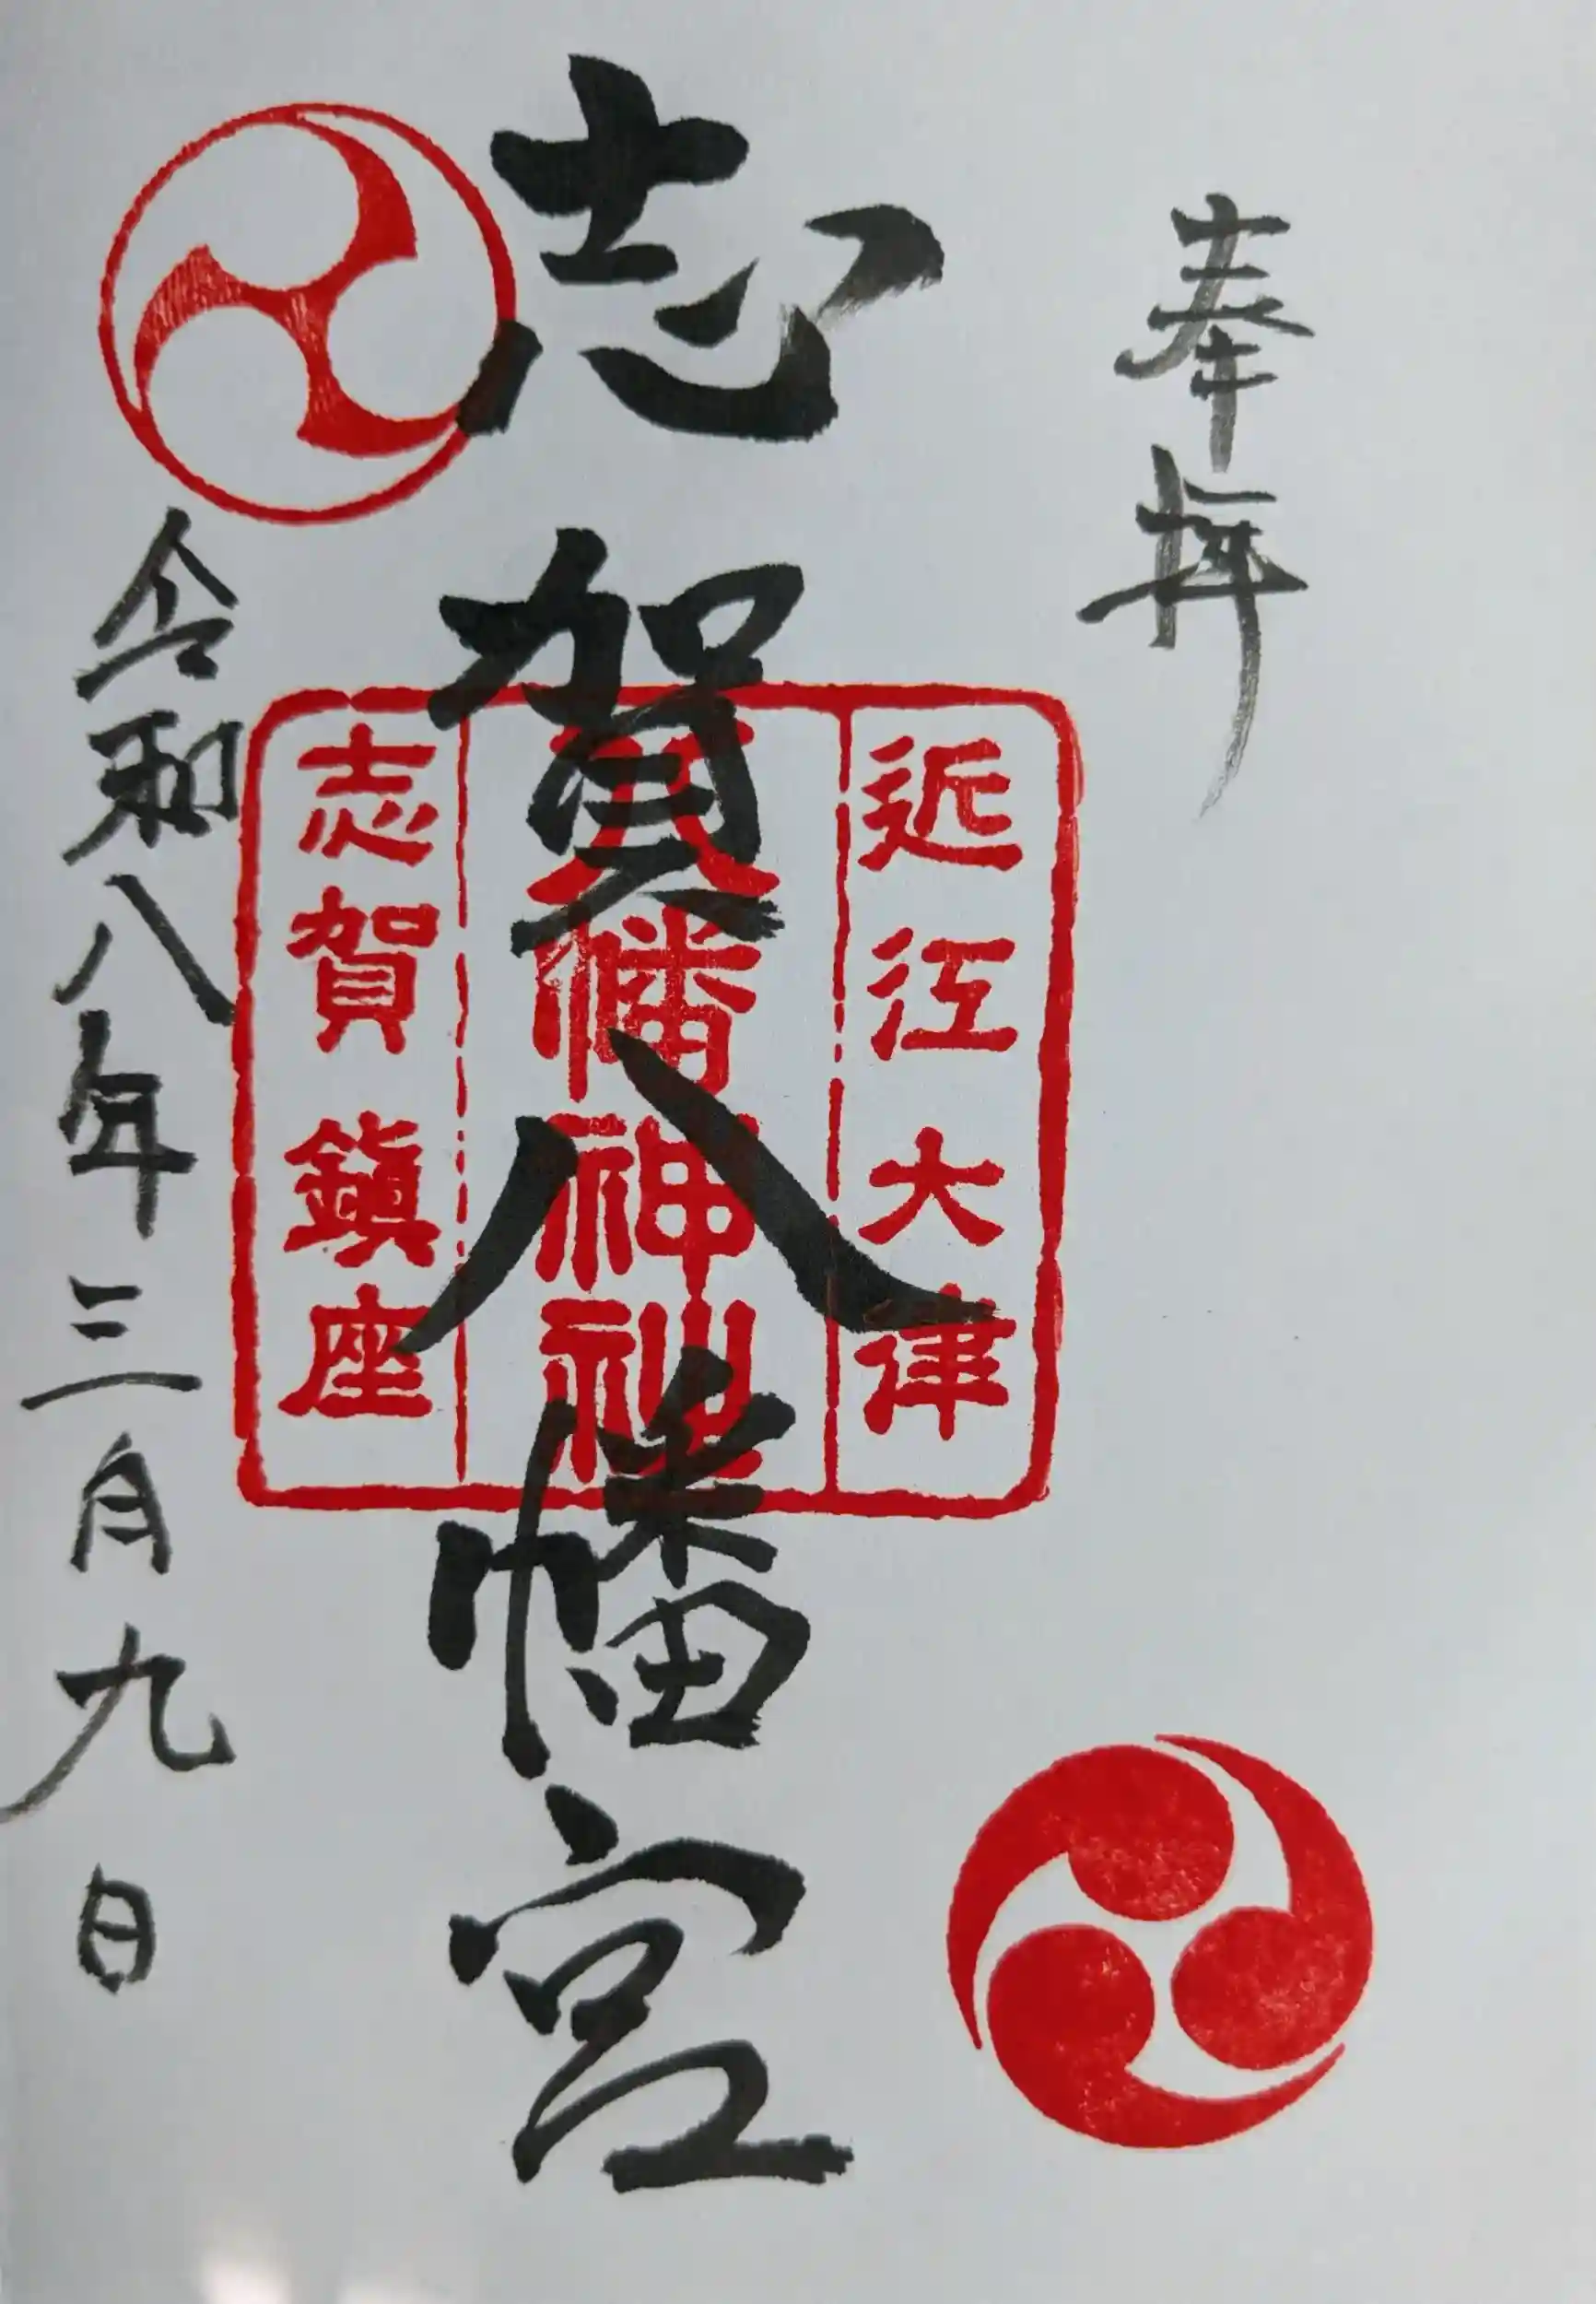 奉拝
志賀八幡宮
近江大津
八幡神社
志賀鎮座
令和八年三月九日